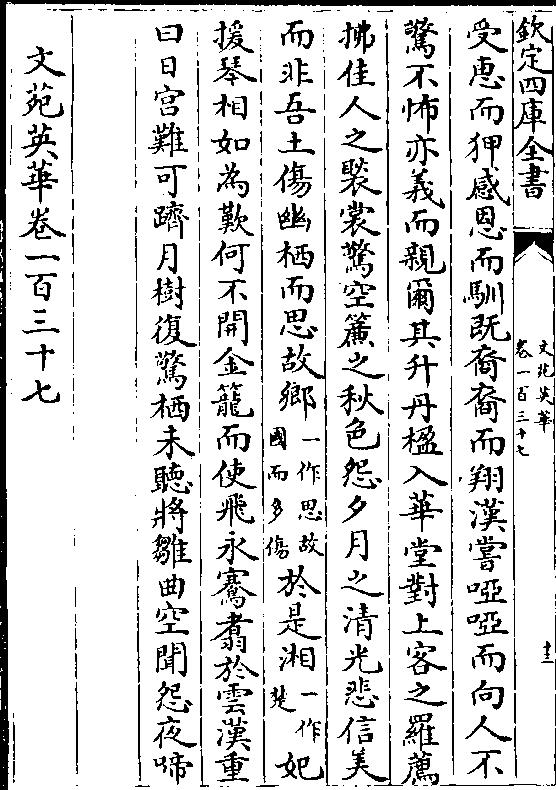 欽定四庫全書
文苑英華
卷一百三十七
受恵而狎感恩而馴既裔裔而翔漢嘗啞啞而向人不
驚不怖亦義而親爾其升丹楹入華堂對上客之羅薦
拂佳人之褧裳驚空簾之秋色怨夕月之清光悲信美
而非吾土傷幽栖而思故鄉一作思故國而多傷於是湘一作楚妃
援琴相如為歎何不開金籠而使飛永騫翥於雲漢重
曰日宮難可躋月樹復驚栖未聽將雛曲空聞怨夜啼
文苑英華卷一百三十七